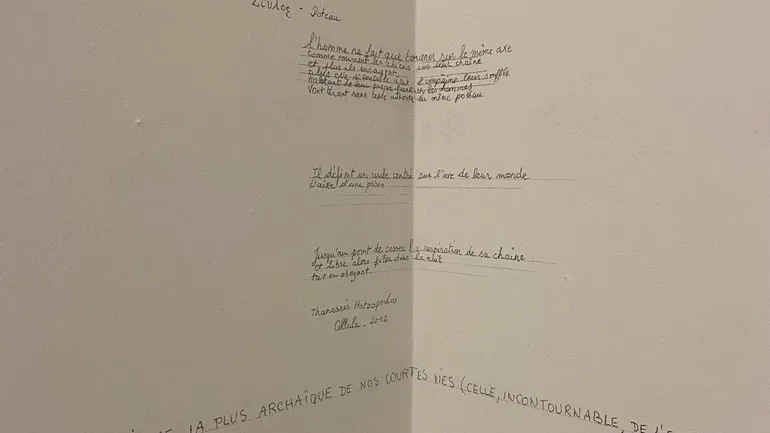 Ξύλος - Poteau
l'homme ne fait que tourner sur le même axe
comme tournent les chiens sur leur chaîne
et plus ils enragent
plus elle s'enroule et comprime leur souffle
haletant de leur propre fureur les hommes
vont tirant sans cesse autour du même poteau
Il définit un cercle centré sur l'axe de leur monde
L'aire d'une prison
Jusqu'au point de casser la respiration de sa chaîne
et libre alors filer dans la nuit
tout en aboyant.
Thanassis Hatzopoulos
2012
LA PLUS ARCHAÏQUE DE NOS COURTES VIES (CELLE, INCONTOURNABLE, DE L'E